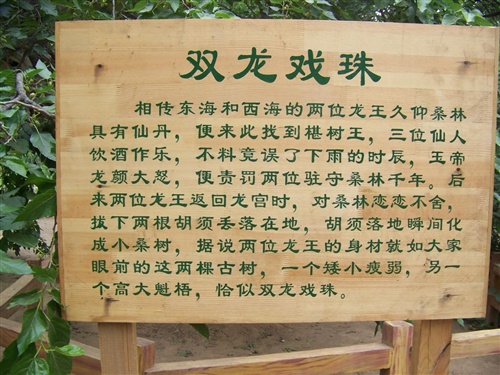 双龙戏珠
相传东海和西海的两位龙王久仰桑林
具有仙丹，便来此找到椹树王，三位仙人
饮酒作乐，不料竟误了下雨的时辰，玉帝
龙颜大怒，便责罚两位驻守桑林千年。后
来两位龙王返回龙宫时，对桑林恋恋不舍，
拔下两根胡须丢落在地，胡须落地瞬间化
成小桑树，据说两位龙王的身材就如大家
眼前的这两棵古树，一个矮小瘦弱，另一
个高大魁梧，恰似双龙戏珠。